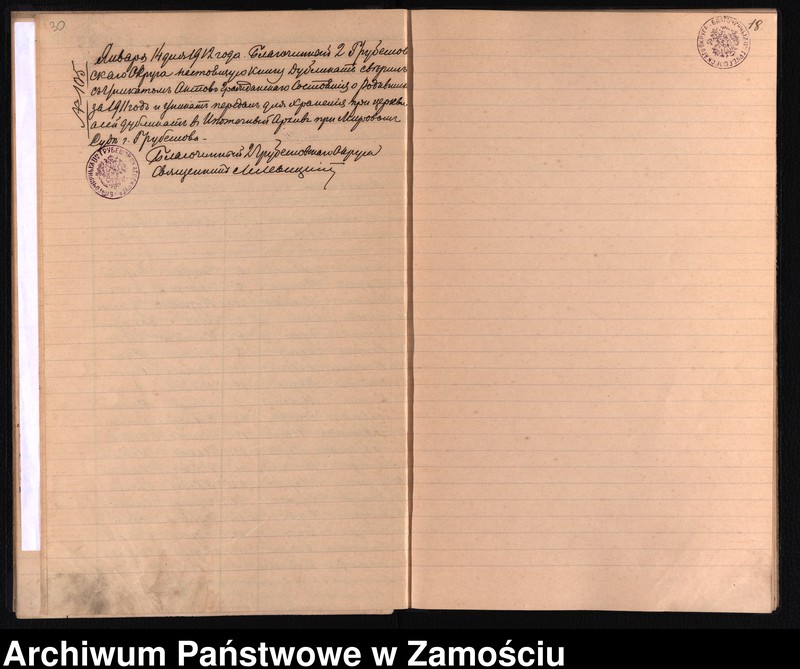 30
Января 14 дня 1912 года. Благочинный 2 Грубешов
скаго Округа настоящую книгу дубликатъ сверилъ
съ Уникатомъ Актовъ Гражданскаго Состоянія о Родившихся
за 1911 годъ и уникатъ переданъ для храненія при церкви
а сей дубликатъ въ Ипотечный Архивъ при Мировомъ
Судѣ г. Грубешова.
№ 105
Благочинный 2 Грубешовскаго Округа
Священникъ
18
Archiwum Państwowe w Zamościu